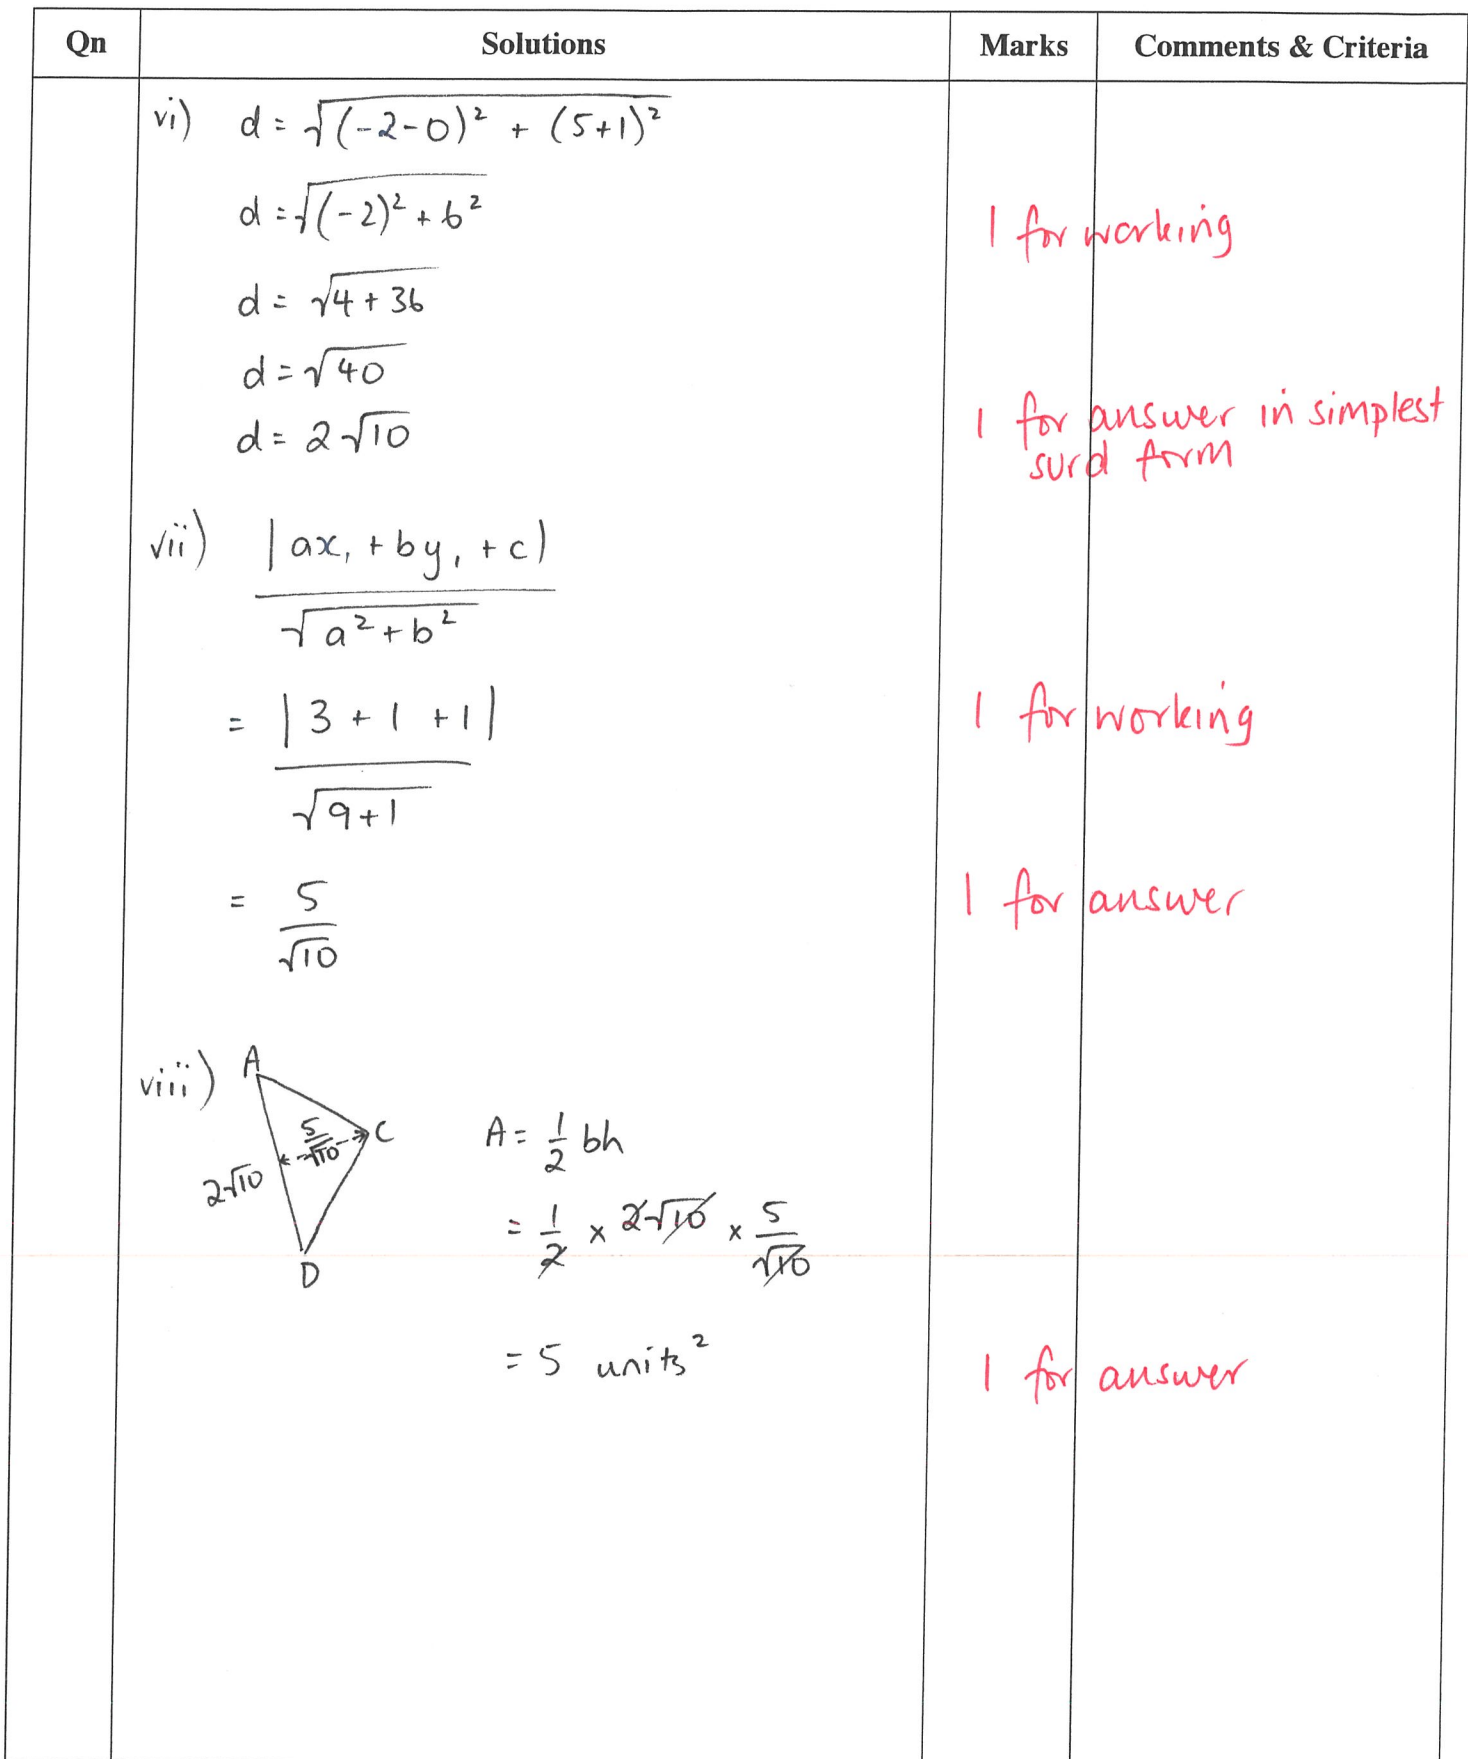 Qn Solutions Marks Comments & Criteria
vi) d = √((-2-0)² + (5+1)²)
d = √((-2)² + 6²)
1 for working
d = √(4 + 36)
d = √40
d = 2√10
1 for answer in simplest
surd form
vii) |ax₁ + by₁ + c|
√(a² + b²)
= |3 + 1 + 1|
√(9+1)
1 for working
= 5
√10
1 for answer
viii) A
5
√10
C
2√10
D
A = 1/2 bh
= 1/2 × 2√10 × 5/√10
= 5 units²
1 for answer